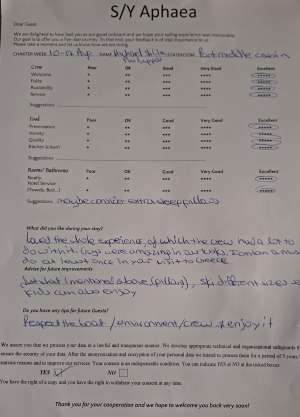 S/Y Aphaea
Dear Guest,
We are delighted to have had you as our guest onboard and we hope your sailing experience was memorable.
Our goal is to offer you a five-star journey. To that end, your feedback is of vital importance to us.
Please take a moment and let us know how we are doing.
CHARTER WEEK: 10-17 Aug NAME
Crew Poor OK Good Very Good Excellent
Welcome * ** *** **** *****
Polite * ** *** **** *****
Availability * ** *** **** *****
Service * ** *** **** *****
Suggestions
Food Poor OK Good Very Good Excellent
Presentation * ** *** **** *****
Variety * ** *** **** *****
Quality * ** *** **** *****
Kitchen (clean) * ** *** **** *****
Suggestions
Rooms/ Bathrooms Poor OK Good Very Good Excellent
Ready * ** *** **** *****
Hotel Service
(Towels, Bed...) * ** *** **** *****
Suggestions maybe consider extra sleep pillows
What did you like during your stay?
Loved the whole experience, of which the crew had a lot to
do with it (they were amazing in all
do at least once in your visit to Greece
Advice for future improvements
Just what I mentioned above (pillows), different sizes so
kids can also enjoy
Do you have any tips for future Guests?
Respect the boat / environment / crew & enjoy it
We assure you that we process your data in a lawful and transparent manner. We develop appropriate technical and organisational safeguards to
ensure the security of your data. After the anonymization and encryption of your personal data we intend to process them for a period of 5 years for
statistic reasons and to improve our services. Your consent is an indispensable condition. You can indicate YES or NO at the linked boxes:
YES NO
You have the right of a copy, and you have the right to withdraw your consent at any time.
Thank you for your cooperation and we hope to welcome you back very soon!